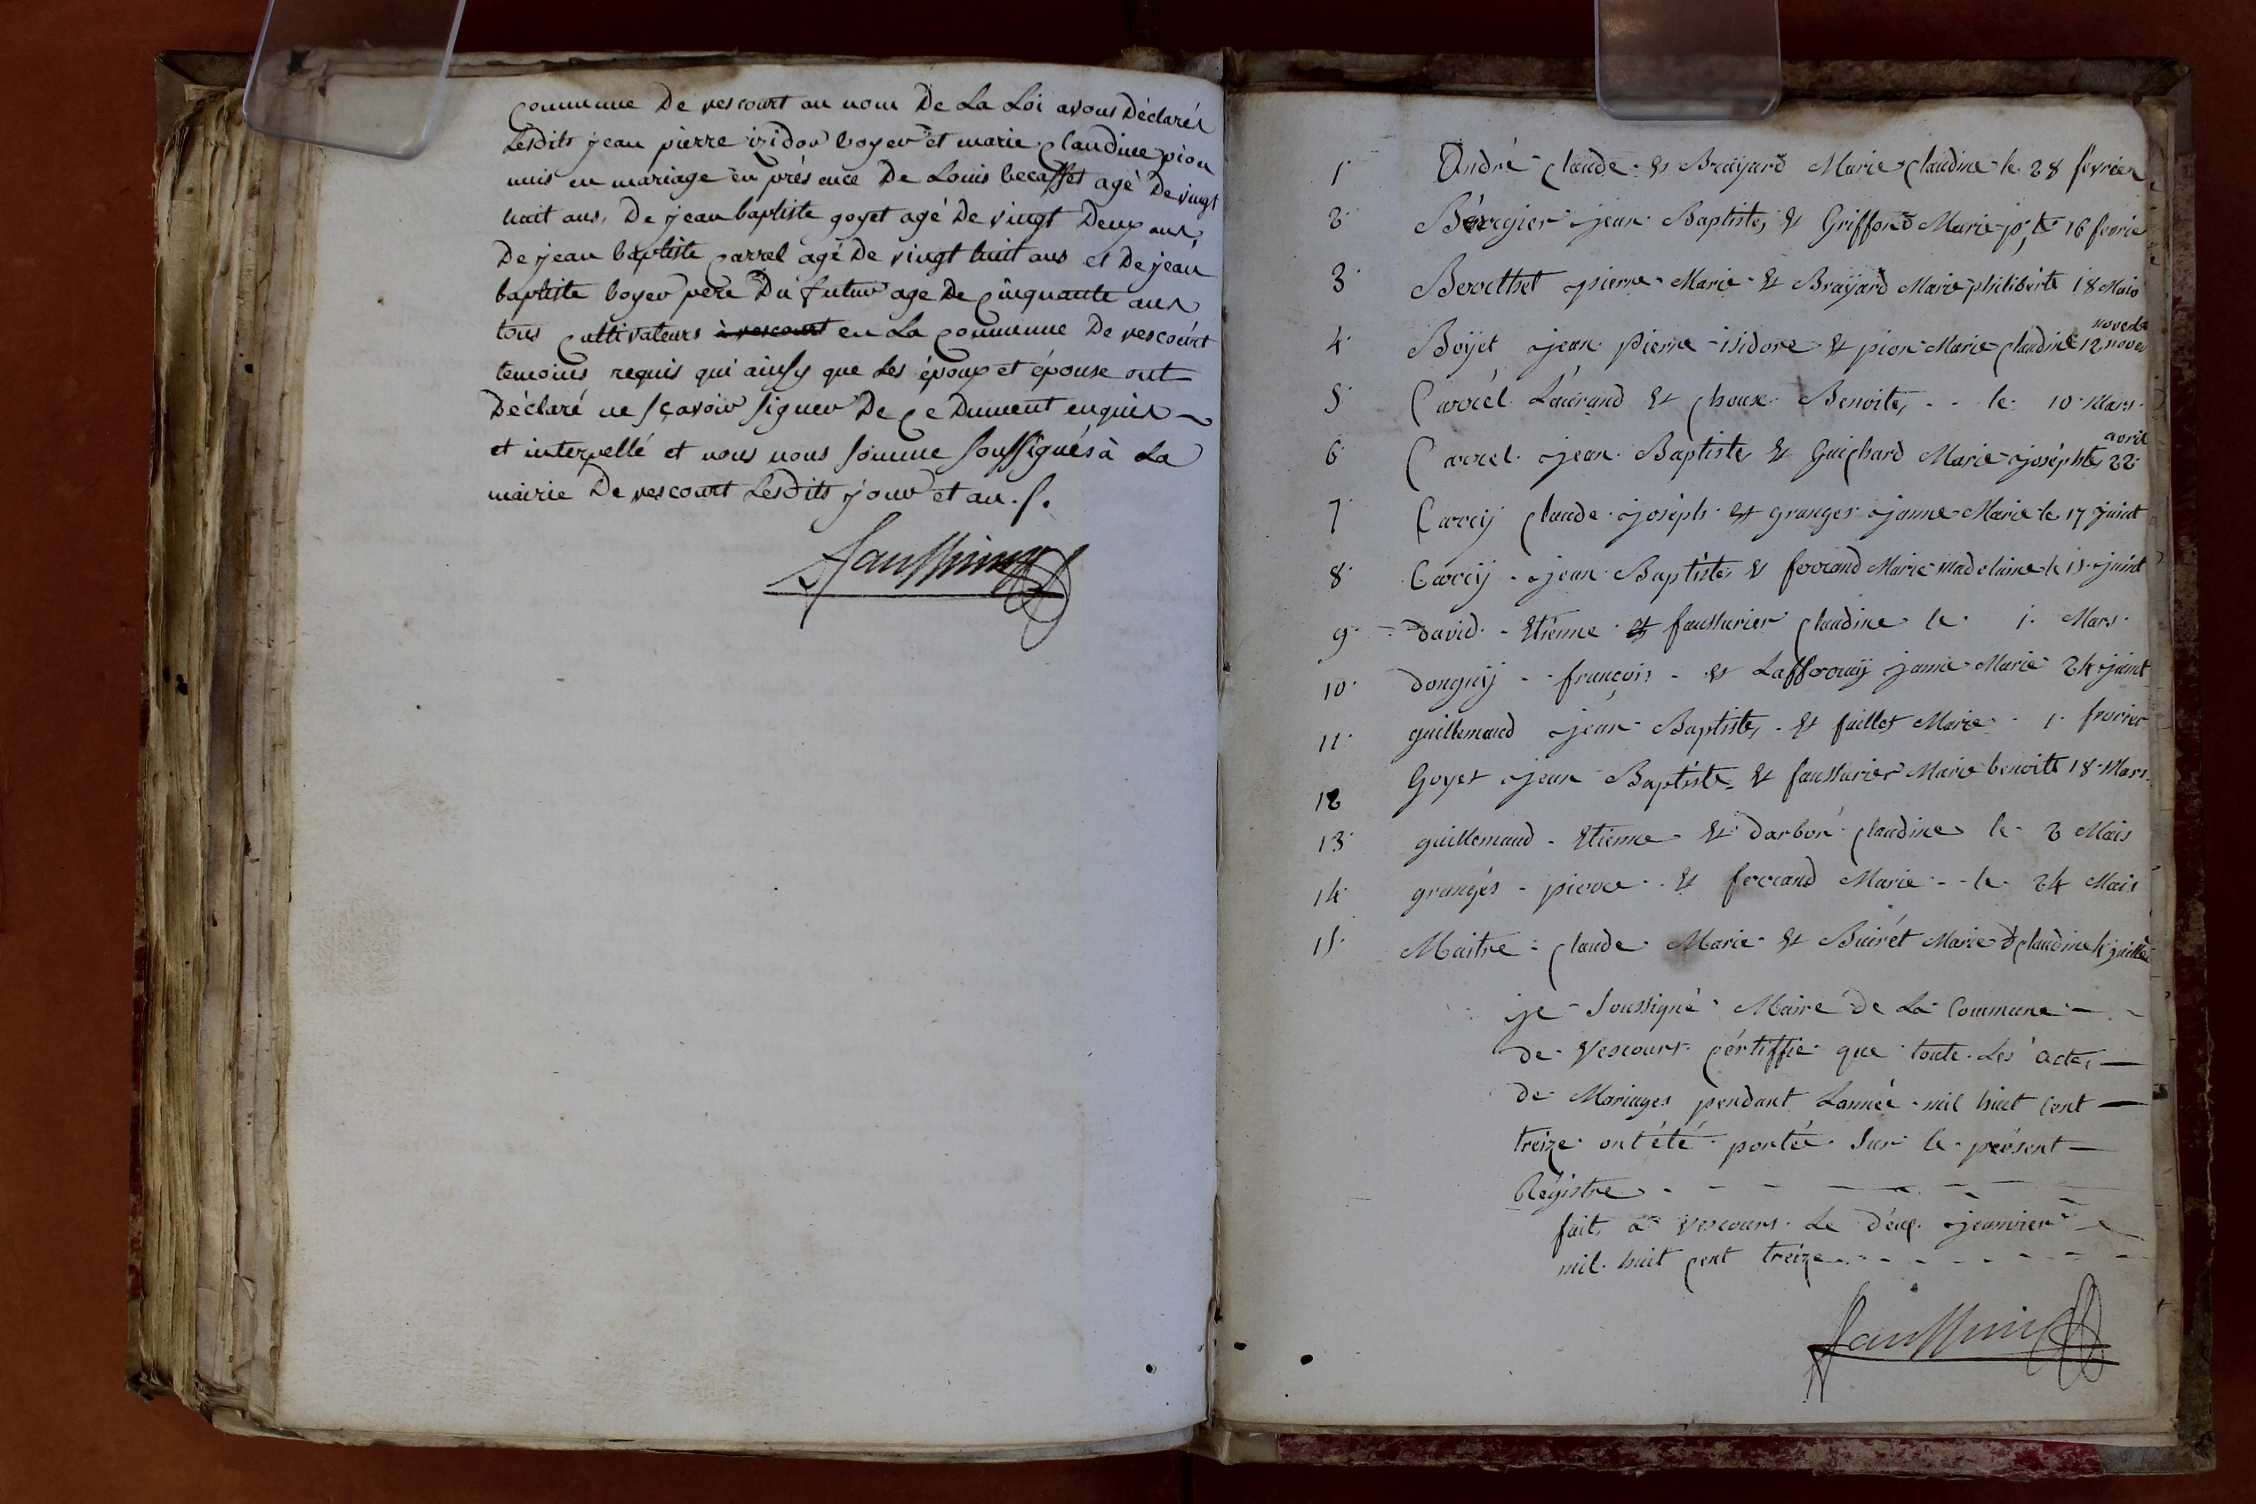 commune De vescourt au nom De La Loi avons Déclarés
Lesdits jean pierre izidor boyer et marie claudine pion
unis en mariage en présence De Louis becasset agé De vingt
huit ans, De jean baptiste goyet agé De vingt Deux ans
De jean baptiste carrel agé De vingt huit ans et De jean
baptiste boyer pere Du futur age De cinquante ans
tous cultivateurs à vescourt en La commune De vescourt
temoins requis qui ainsy que Les époux et épouse ont
Déclaré ne sçavoir signer De ce Dument enquis
et interpellé et nous nous somme soussignés à La
mairie De vescourt Lesdits jour et an. s.
1 André claude & Brayard Marie claudine le 28 fevrier
2 Bergier jean Baptiste & Griffond Marie js.te 16 fevrie
3 Berrethet pierre Marie & Brayard Marie philiberte 18 Mais
novembre
4 Boyet jean pierre isidore & pion Marie claudine 12 nove
5 Carrel Laurand & choux Benoite - - le 10 Mars
avril
6 Carrel jean Baptiste & Guichard Marie josephte 22
7 Carrij claude joseph & granges janne Marie le 17 juint
8 Carrij jean Baptiste & ferrand Marie Madelaine le 15 juint
9 david Etienne & fausturier claudine le 1 Mars
10 donguij françois & Lafforouij janne Marie 24 juint
11 guillemaud jean Baptiste & faillet Marie 1 fevrier
12 Goyet jean Baptiste & fausturier Marie benoite 18 Mars
13 guillemaud Etienne & darbon claudine le 2 Mais
14 granges pierre & ferrand Marie - - le 24 Mais
15 Maitre claude Marie & Buirét Marie claudine juille
je soussigné Maire de La Commune
de Vescours certiffie que toute Les actes
de Mariages pendant L'année mil huit cent
treize ont été portée sur le présent
Régistre
fait à Vescours Le deux jeanvier
mil huit cent treize